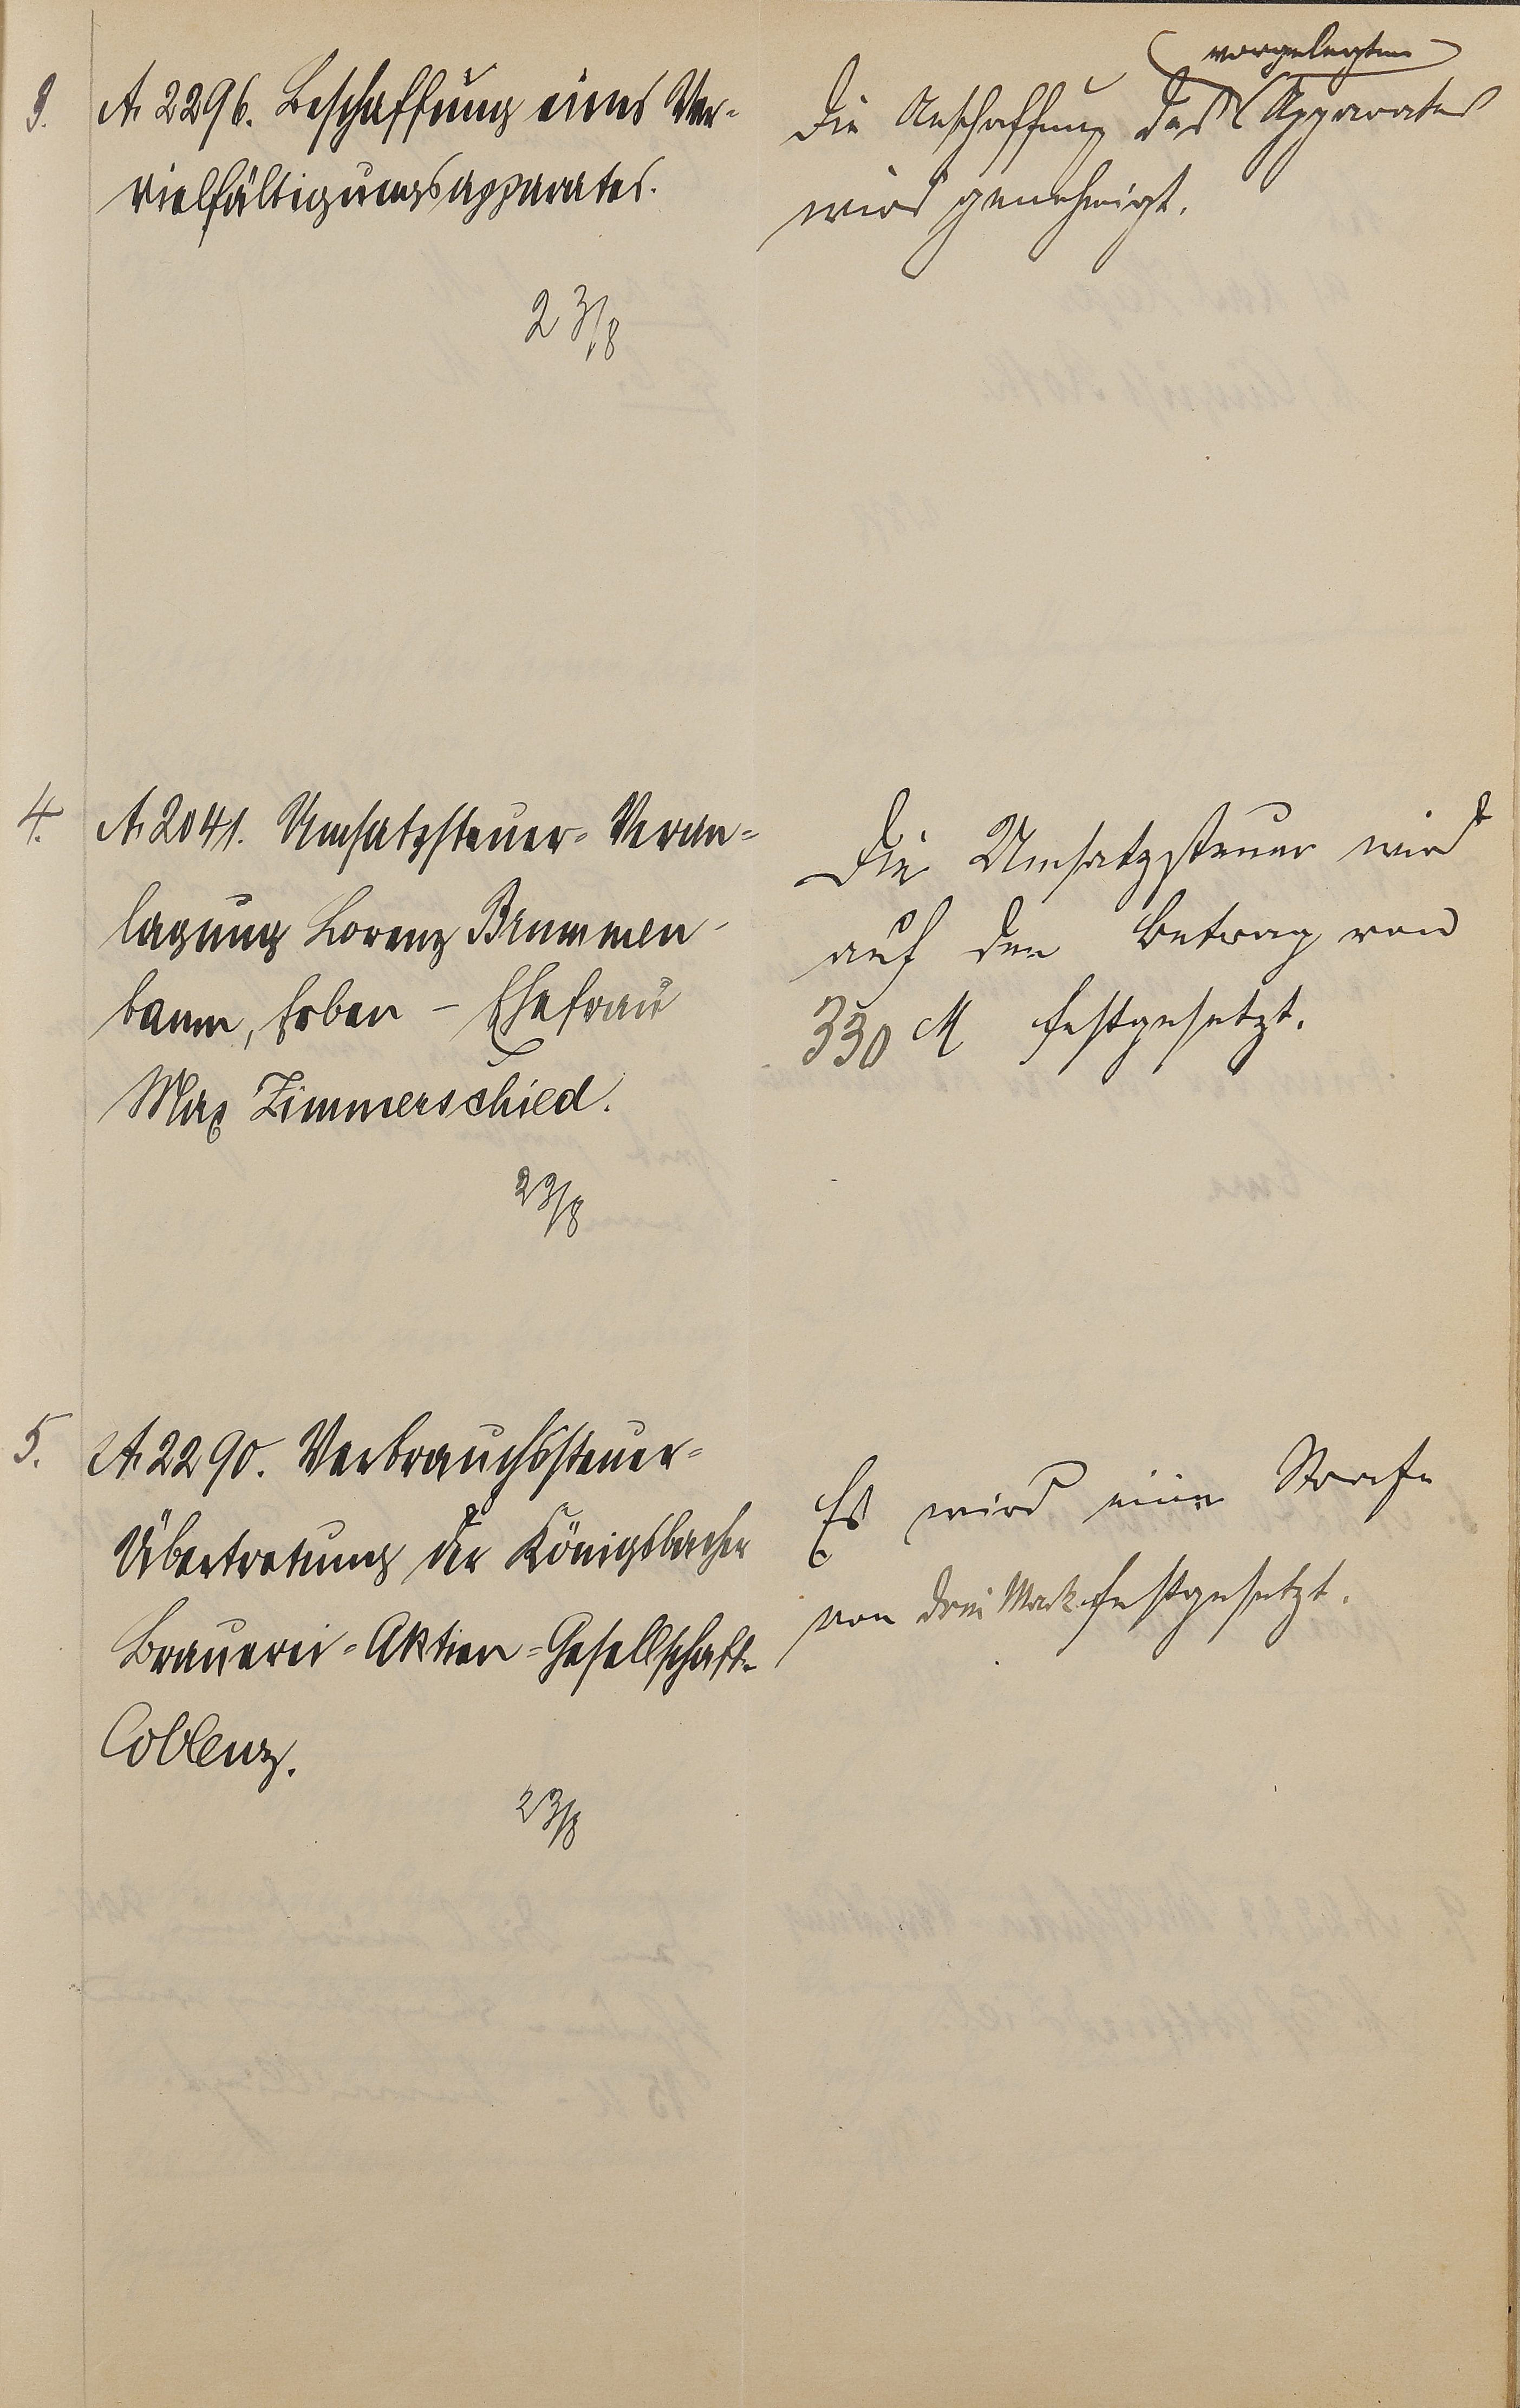 3. A. 2296. Beschaffung eines Ver-
vielfältigungsapparates.
23/8
vorgelegten
Die Anschaffung des Apparates
wird genehmigt.
4. A. 2041. Umsatzsteuer-Veran-
lagung Lorenz Brummen-
baum, Erben - Ehefrau
Max Zimmerschied.
23/8
Die Umsatzsteuer wird
auf den Betrag von
330 M festgesetzt.
5. A. 2290. Verbrauchssteuer-
Übertretung der Königsbacher
Brauerei-Aktien-Gesellschaft-
Coblenz.
23/8
Es wird eine Strafe
von drei Mark festgesetzt.